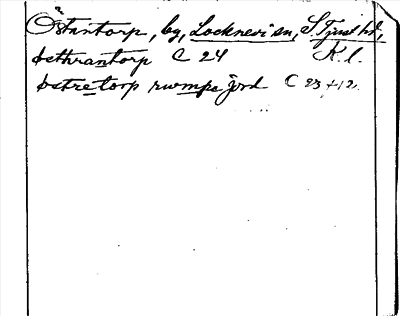 Östantorp, by, Locknevi sn, S. Tjust hd,
østhrantorp C 24 K. l.
østretorp rwmpe jord C 23 +12